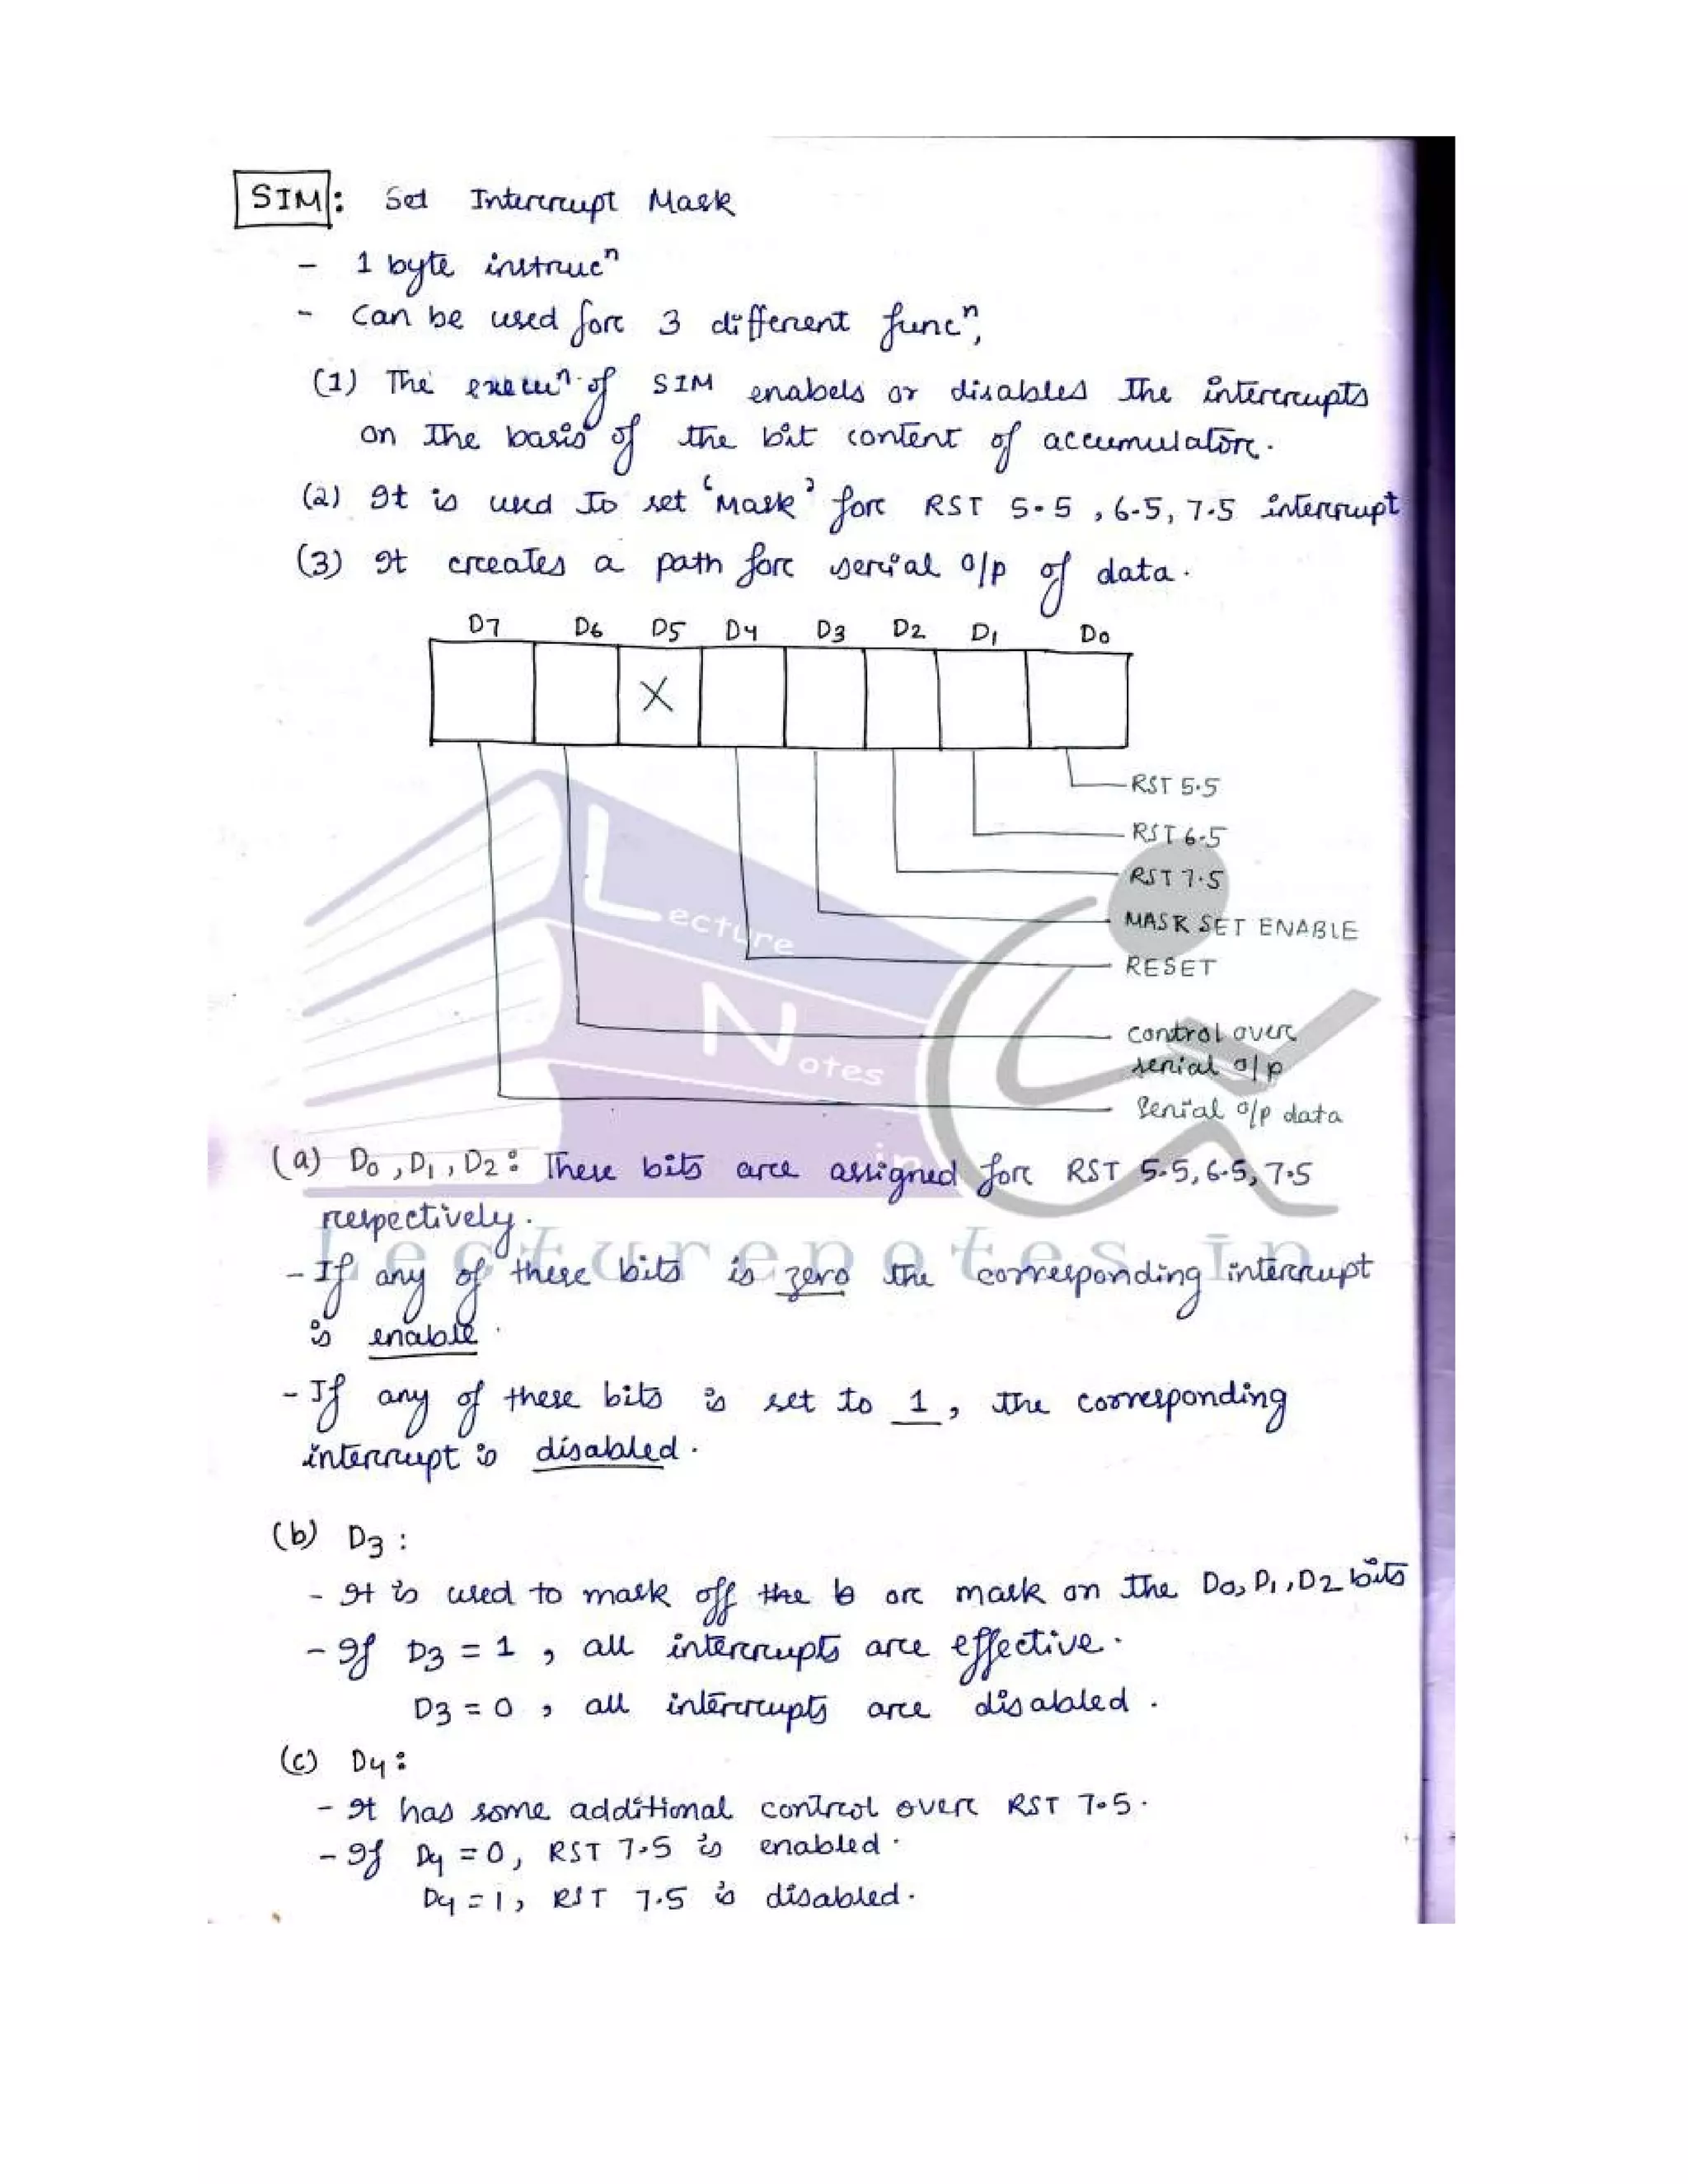 SIM : Set Interrupt Mask
- 1 byte instrucⁿ
- Can be used for 3 different funcⁿ,
(1) The execuⁿ of SIM enabels or disables the interrupts
on the basis of the bit content of accumulator.
(2) It is used to set 'Mask' for RST 5.5, 6.5, 7.5 interrupt
(3) It creates a path for serial o/p of data.
D7 D6 D5 D4 D3 D2 D1 D0
X
RST 5.5
RST 6.5
RST 7.5
MASK SET ENABLE
RESET
control over
serial o/p
Serial o/p data
Lecture
Notes
in
(a) D0, D1, D2: These bits are assigned for RST 5.5, 6.5, 7.5
respectively.
Lecturenotes.in
- If any of these bits is zero the corresponding interrupt
is enable.
- If any of these bits is set to 1, the corresponding
interrupt is disabled.
(b) D3 :
- It is used to mask off the b or mask on the D0, D1, D2 bits
- If D3 = 1, all interrupts are effective.
D3 = 0, all interrupts are disabled.
(c) D4 :
- It has some additional control over RST 7.5.
- If D4 = 0, RST 7.5 is enabled.
D4 = 1, RST 7.5 is disabled.